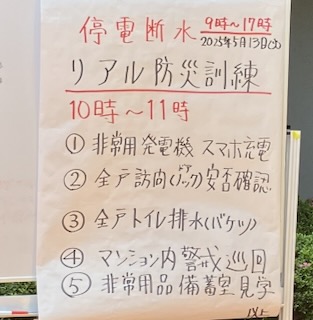 停電断水 9時～17時
2025年5月13日(火)
リアル防災訓練
10時～11時
① 非常用発電機 スマホ充電
② 全戸訪問(ノック)安否確認
③ 全戸トイレ排水(バケツ)
④ マンション内警戒巡回
⑤ 非常用品備蓄室見学
以上